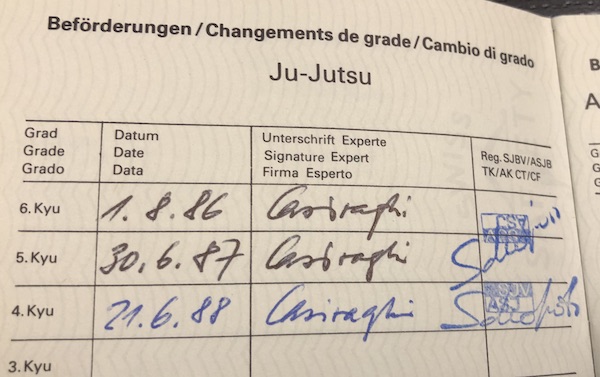 Beförderungen / Changements de grade / Cambio di grado
Ju-Jutsu
Grad Datum Unterschrift Experte
Grade Date Signature Expert Reg. SJBV/ASJB
Grado Data Firma Esperto TK/AK CT/CF
6. Kyu 1.8.86 Casiraghi
5. Kyu 30.6.87 Casiraghi
4. Kyu 21.6.88 Casiraghi
3. Kyu